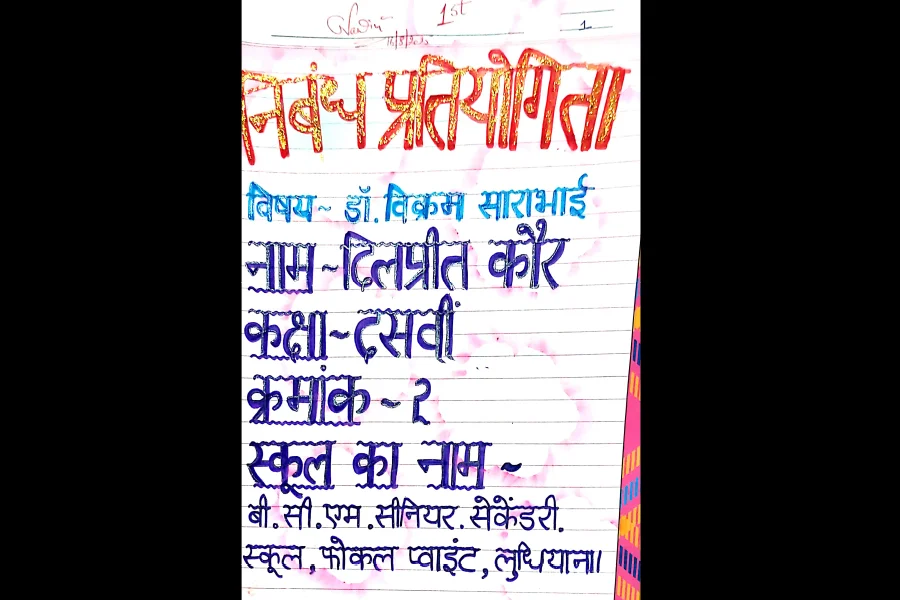 1st
1
निबंध प्रतियोगिता
विषय~ डॉ. विक्रम साराभाई
नाम~दिलप्रीत कौर
कक्षा~दसवीं
क्रमांक~२
स्कूल का नाम~
बी.सी.एम.सीनियर.सेकेंडरी.
स्कूल, फोकल प्वाइंट, लुधियाना।